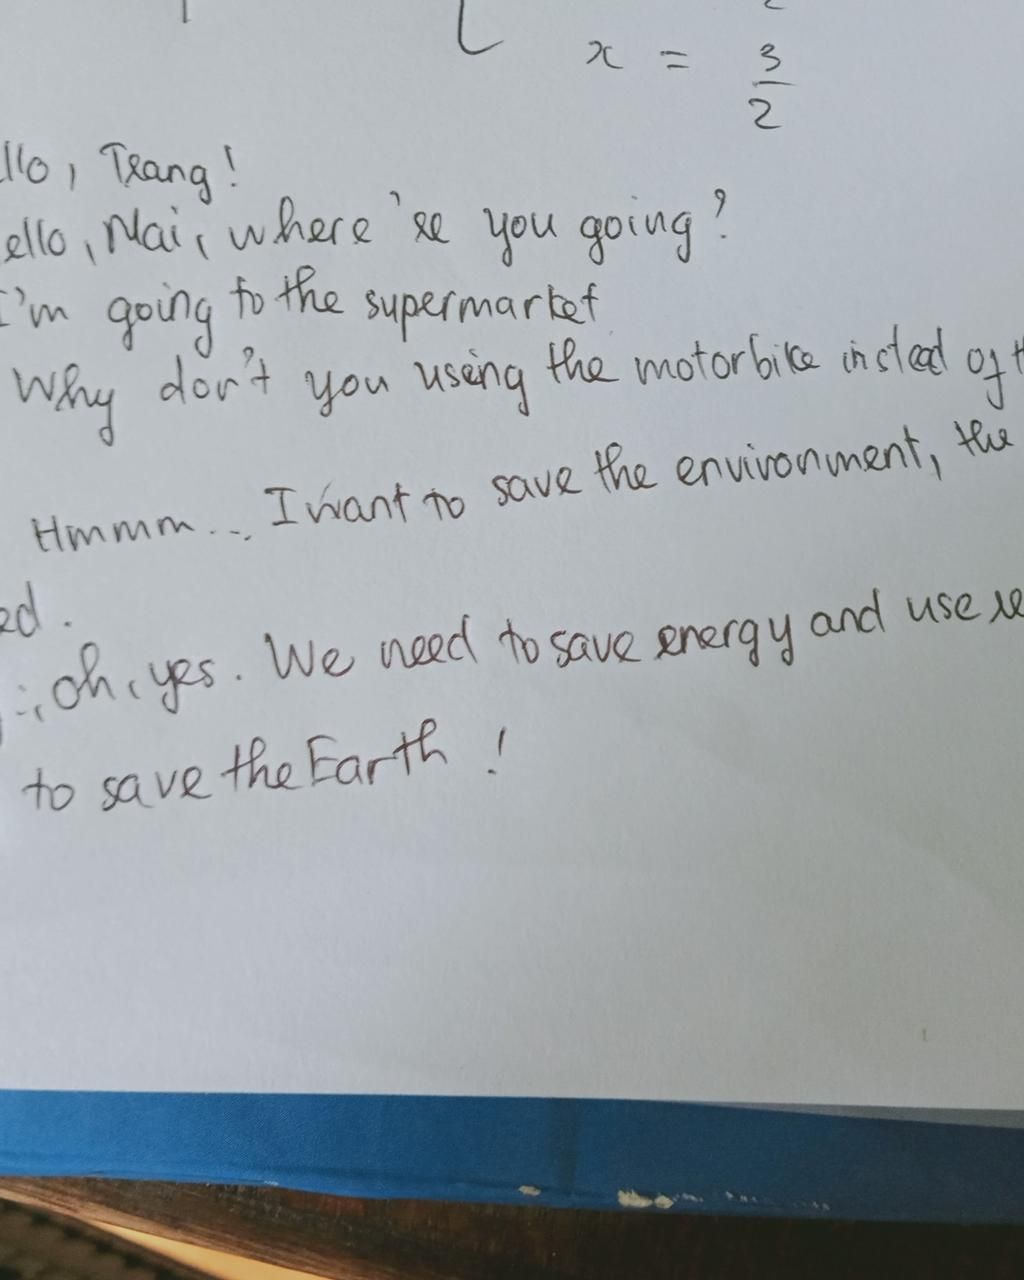 x = 3/2
llo, Trang!
ello, Mai, where're you going?
I'm going to the supermarket
Why don't you using the motorbike insted of
Hmmm... I want to save the environment, the
ed.
:, oh, yes. We need to save energy and use re
to save the Earth!